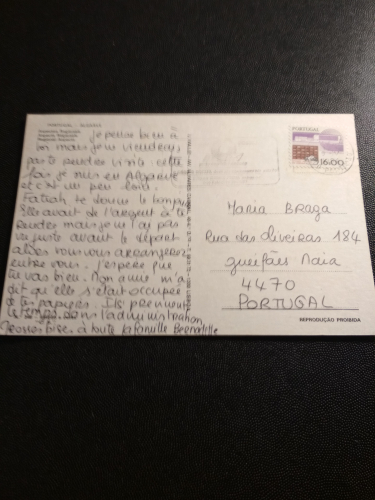 PORTUGAL - ALGARVE
je pense bien à
toi mais je ne viendrai
pas te rendre visite cette
fois je suis en Algarve
et c'est un peu loin.
Fatiah te donne le bonjour
Elle avait de l'argent à te
rendre mais je ne l'ai pas
vu juste avant le départ
alors vous vous arrangerez
entre vous. J'espère que
tu vas bien. Mon amie m'a
dit qu'elle s'était occupée
de tes papiers. Ils prennent
le temps dans l'administration
Grosses bises à toute la famille Bernadette
PORTUGAL
16.00
Maria BRAGA
Rua das oliveiras 184
gueifães Maia
4470
PORTUGAL
REPRODUÇÃO PROIBIDA